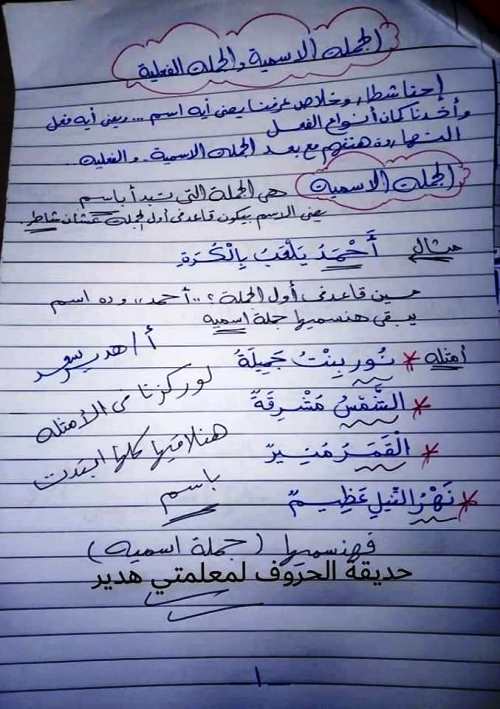 الجملة الاسمية والجملة الفعلية
إحنا شطار وخلاص عرفنا يعني أيه اسم ... ويعني أيه فعل
وأخدنا كمان أنواع الفعل
النهاردة هنفهم مع بعض الجملة الاسمية، والفعلية
الجملة الاسمية هي الجملة التي تبدأ باسم
يعني الاسم بيكون قاعد في أول الجملة عشان شاطر.
مثال أَحْمَدُ يَلْعَبُ بِالْكُرَةِ
مين قاعد في أول الجملة؟ .. أحمد،، وده اسم
يبقى هنسميها جملة اسمية
أ/ هدير سعد
أمثلة * نُور بِنْتُ جَمِيلَةُ
* الشَّمْسُ مُشْرِقَةٌ
* الْقَمَرُ مُنِيرٌ
* نَهْرُ النِّيلِ عَظِيمٌ
لو ركزنا في الأمثلة
هنلاقيها كلها ابتدت
باسم
فهنسميها (جملة اسمية)
حديقة الحروف لمعلمتي هدير
١